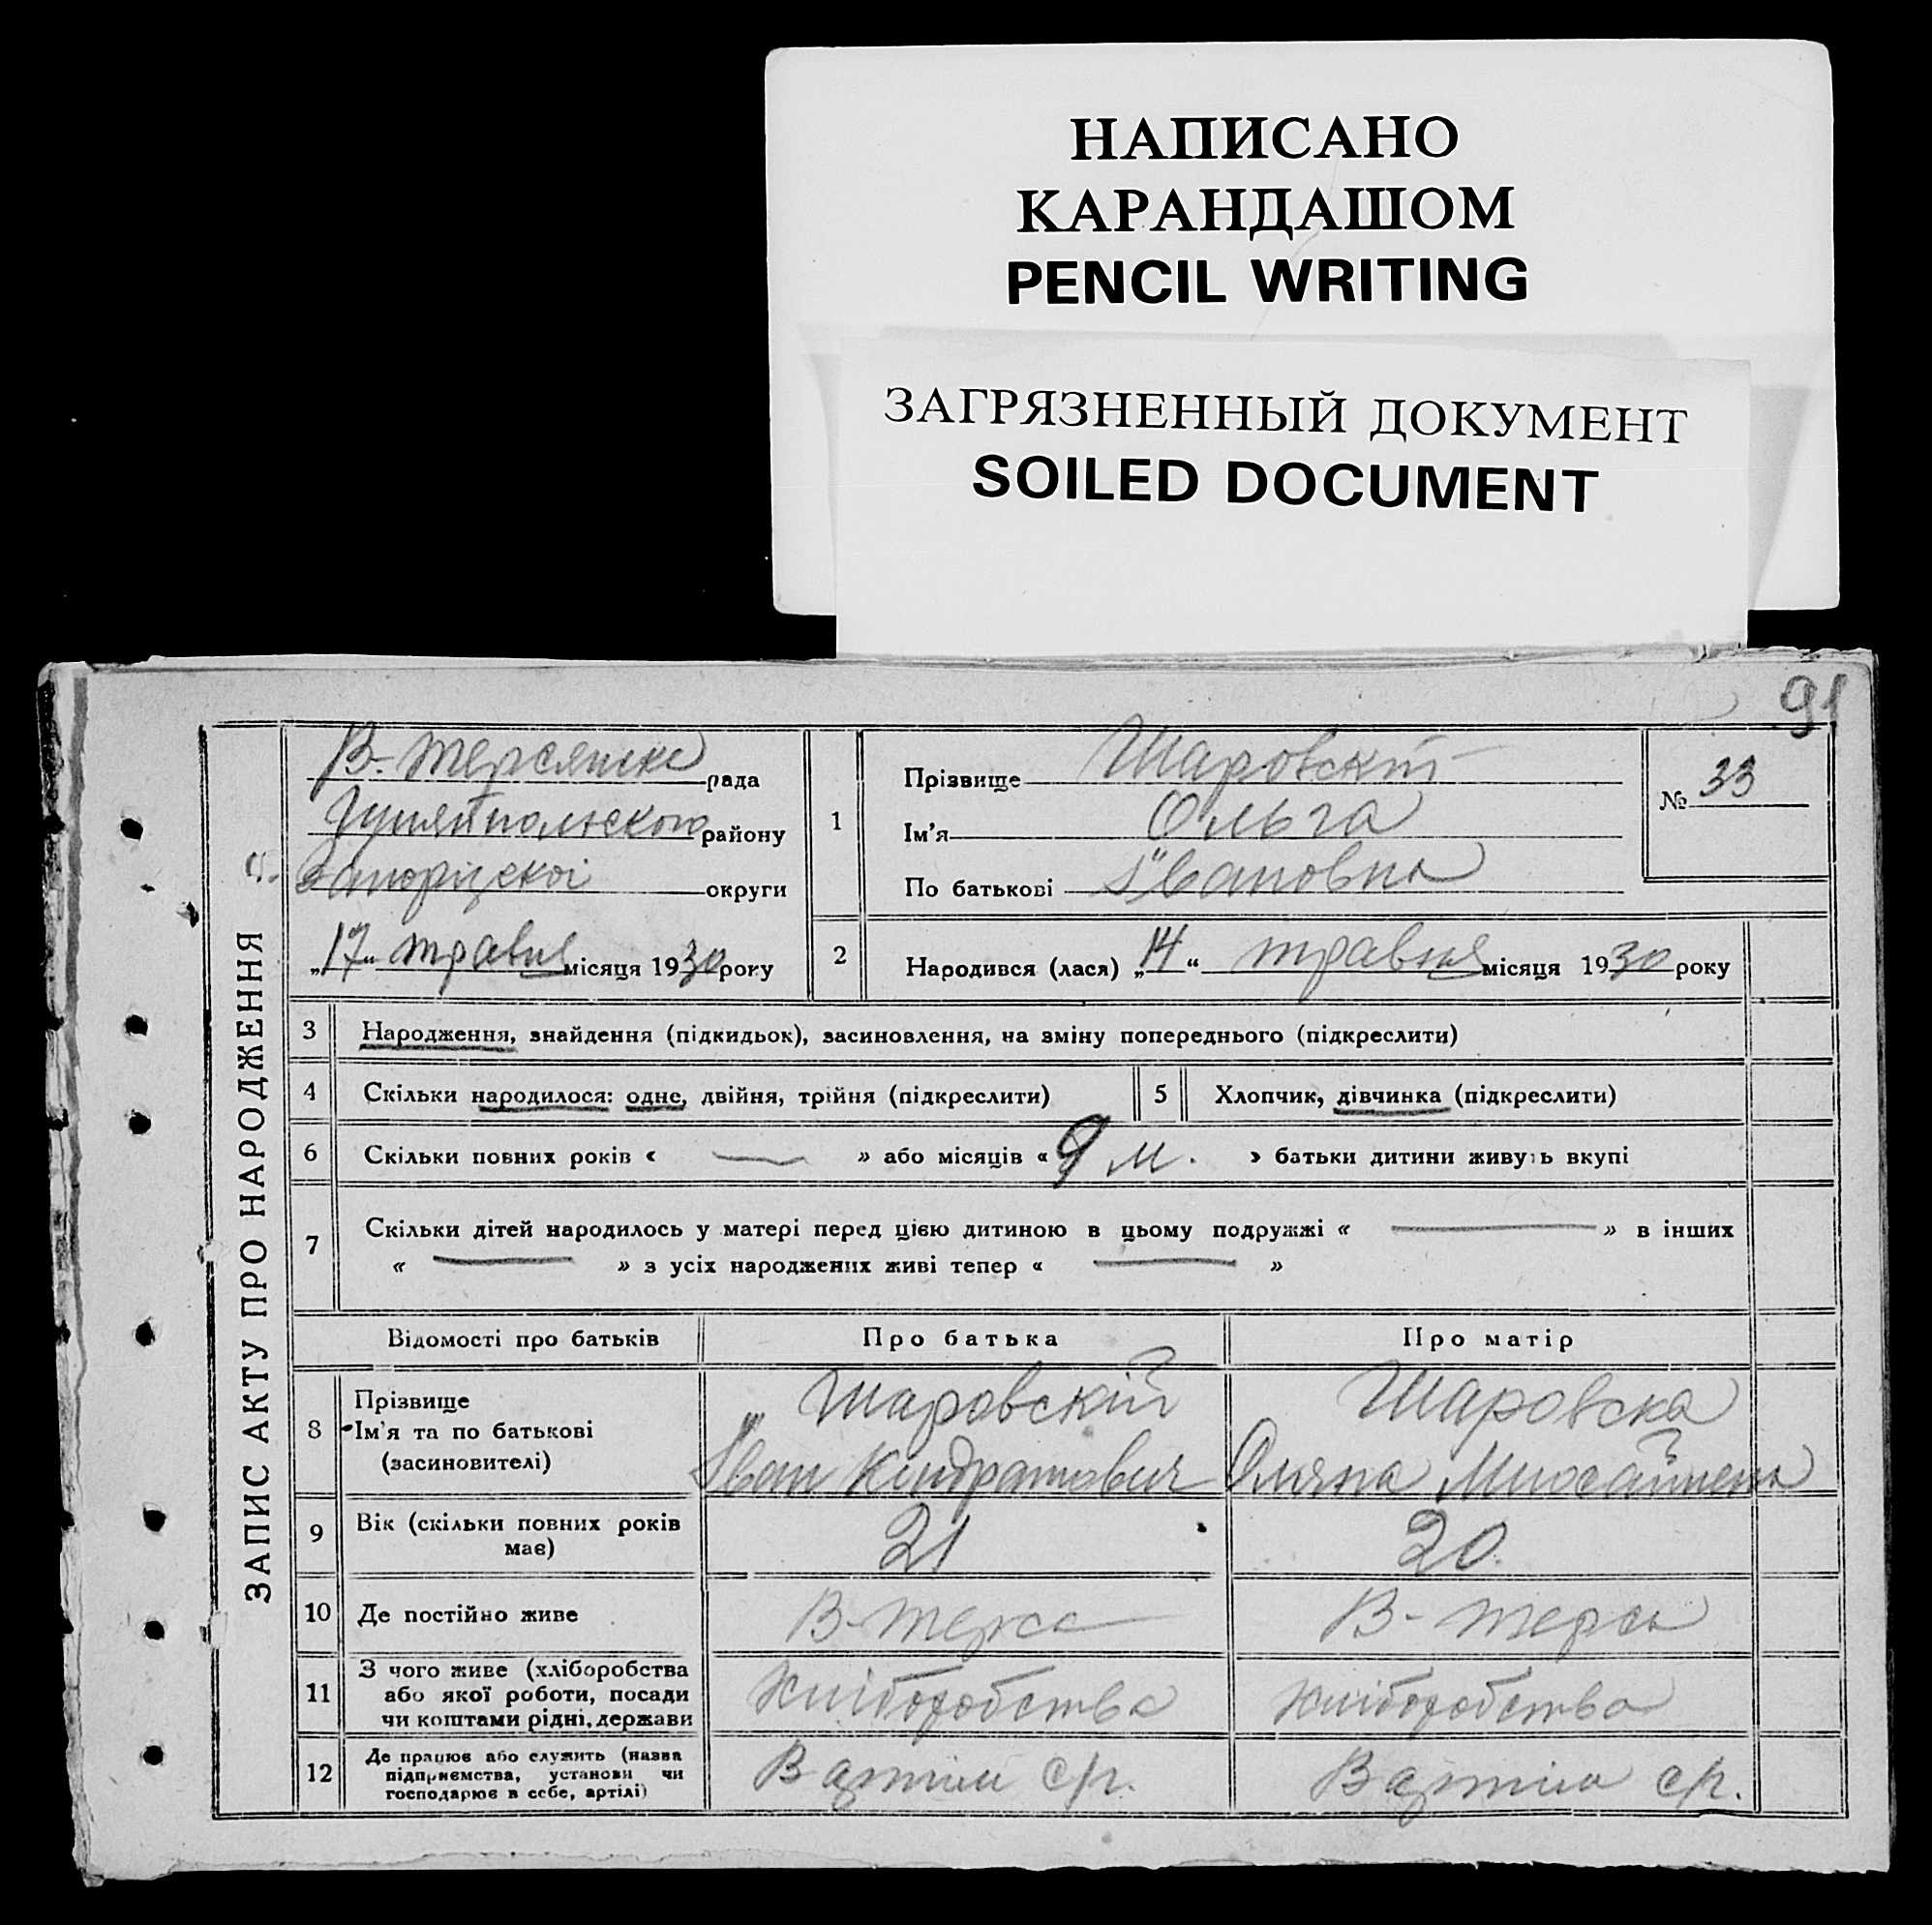 НАПИСАНО
КАРАНДАШОМ
PENCIL WRITING
ЗАГРЯЗНЕННЫЙ ДОКУМЕНТ
SOILED DOCUMENT
91
ЗАПИС АКТУ ПРО НАРОДЖЕННЯ
В-Терсянске рада
Гуляйпольского району
Запоріцскої округи
„17“ травня місяця 1930 року
1
Прізвище Шаровскій
Ім'я Ольга
По батькові Івановна
№ 33
2
Народився (лася) „14“ травня місяця 1930 року
3 Народження, знайдення (підкидьок), засиновлення, на зміну попереднього (підкреслити)
4 Скільки народилося: одне, двійня, трійня (підкреслити)
5 Хлопчик, дівчинка (підкреслити)
6 Скільки повних років « — » або місяців « 9 м. » батьки дитини живуть вкупі
7 Скільки дітей народилось у матері перед цією дитиною в цьому подружжі « — » в інших
« — » з усіх народжених живі тепер « — »
Відомості про батьків Про батька Про матір
8 Прізвище
Ім'я та по батькові
(засиновителі)
Шаровскій
Іван Кіндратович
Шаровска
Оляна
9 Вік (скільки повних років
має)
21
20
10 Де постійно живе
В-Терса
В-Терса
11 З чого живе (хліборобства
або якої роботи, посади
чи коштами рідні, держави
Хліборобства
Хліборобства
12 Де працює або служить (назва
підприємства, установи чи
господарює в себе, артілі)
В артіли с/г.
В артіли с/г.